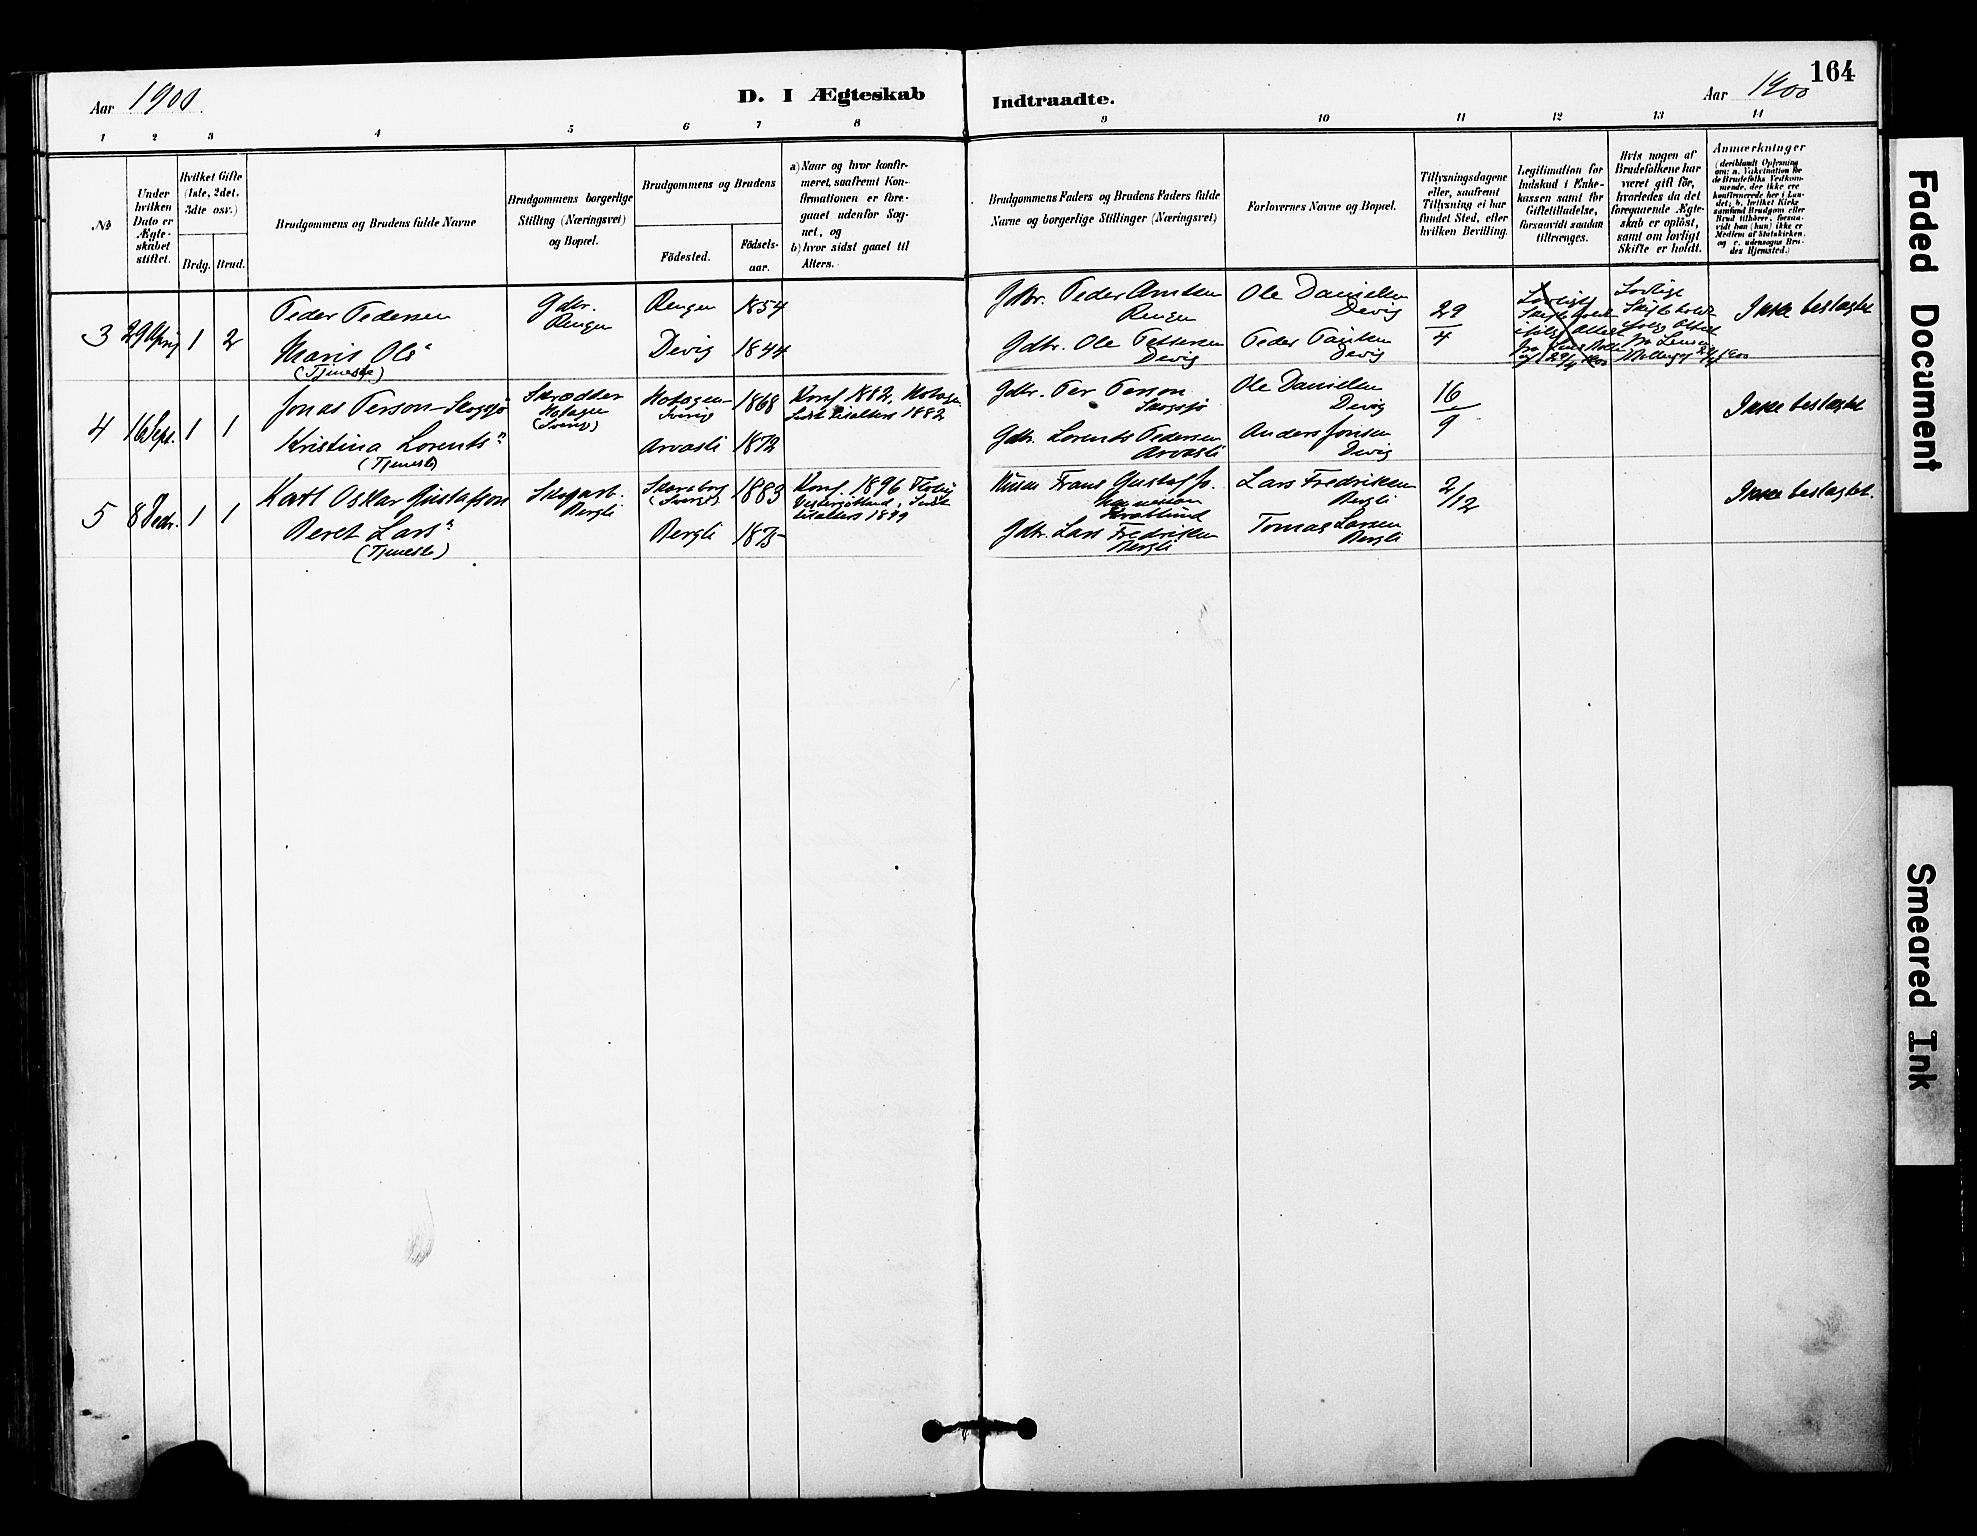 164
Aar 1900.
D. I Ægteskab
Indtraadte.
Aar 1900
1 2 3 4 5 6 7 8 9 10 11 12 13 14
№
Under hvilken Dato er Ægteskabet stiftet.
Hvilket Gifte (1ste, 2det, 3dte osv.)
Brdg. Brud.
Brudgommens og Brudens fulde Navne
Brudgommens borgerlige Stilling (Næringsvei) og Bopæl.
Brudgommens og Brudens
Fødested.
Fødselsaar.
a) Naar og hvor konfirmeret, saafremt Konfirmationen er foregaaet udenfor Sognet, og
b) hvor sidst gaaet til Alters.
Brudgommens Faders og Brudens Faders fulde Navne og borgerlige Stillinger (Næringsvei)
Forlovernes Navne og Bopæl.
Tillysningsdagene eller, saafremt Tillysning ei har fundet Sted, efter hvilken Bevilling.
Legitimation for Indskud i Enkekassen samt for Giftetilladelse, forsaavidt saadan tiltrænges.
Hvis nogen af Brudefolkene har været gift før, hvorledes da det foregaaende Ægteskab er opløst, samt om lovligt Skifte er holdt.
Anmærkninger
(deriblandt Oplysning om: a. Vakcination for de Brudefolks Vedkommende, der ikke ere konfirmerede her i Landet; b. hvilket Kirkesamfund Brudgom eller Brud tilhører, forsaavidt han (hun) ikke er Medlem af Statskirken, og c. udensogns Brudes Hjemsted.)
3 29 April 1 2 Peder Pedersen Gdbr. Rengen Rengen 1854 Gdbr. Peder Arntsen Rengen Ole Danielsen Devig 29/4 Ikke beslægtet
Maris Ols" (Tjeneste) Devig 1844 Gdbr. Ole Pettersen Devig Peder Devig
4 16 Sept. 1 1 Jonas Person-Skogsjö Skrædder Hotagen (Sverig) Hotagen Sverig 1868 Konf. 1882, Hotagen Sidst tilalters 1882 Gdbr. Per Person Skogsjö Ole Danielsen Devig 16/9 Ikke beslægtet
Kristina Lorents" (Tjeneste) Arvasli 1872 Gdbr. Lorents Pedersen Arvasli Anders Jonsen Devig
5 8 Decbr. 1 1 Karl Oskar Gustafsson Skogarb. Bergli Skaraborg (Sverige) 1883 Konf. 1896 Vestergötland, Sidst tilalters 1899 Frans Gustaf Lars Fredriksen Bergli 2/12 Ikke beslægtet.
Beret Lars" (Tjeneste) Bergli 1875 Gdbr. Lars Fredriksen Bergli Tomas Larsen Bergli
Faded Document
Smeared Ink